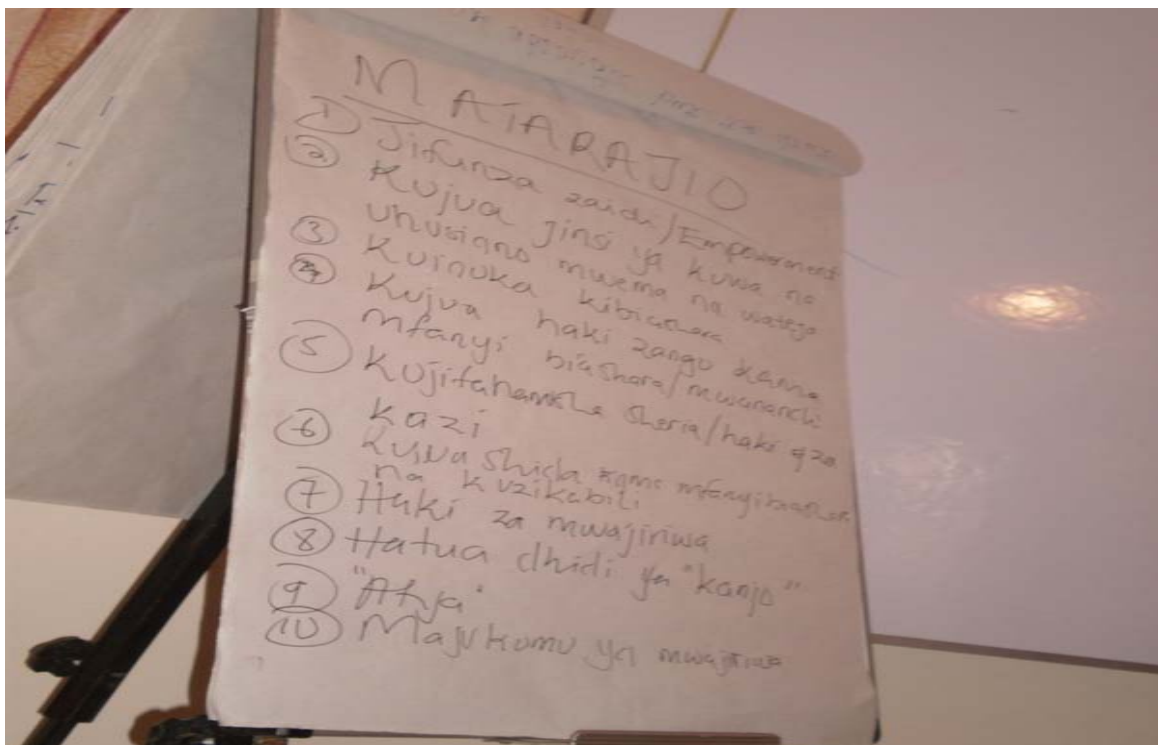 MATARAJIO
1 Jifunza zaidi/Empowerment
2 Kujua jinsi ya kuwa na
uhusiano mwema na wateja
3 Kuinuka kibiashara
4 Kujua haki zangu kama
mfanyi biashara/mwananchi
5 Kujifahamisha sheria/haki za
kazi
6 Kujua shida kama mfanyibiashara
na kuzikabili
7 Haki za mwajiriwa
8 Hatua dhidi ya "kanjo"
9 "Afya"
10 Majukumu ya mwajiriwa